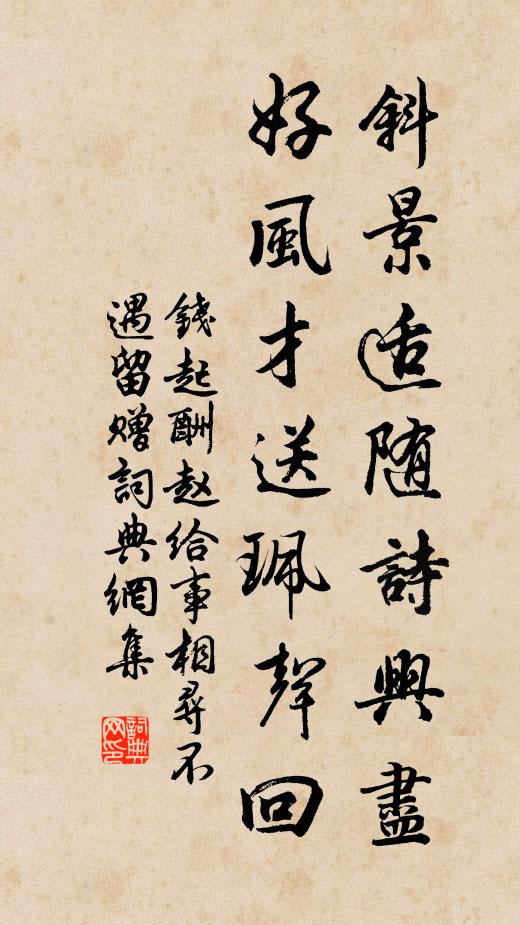 斜景适随詩興盡
好風才送珮聲回
錢起酬赵给事相尋不
遇留赠詞典網集
詞典网印